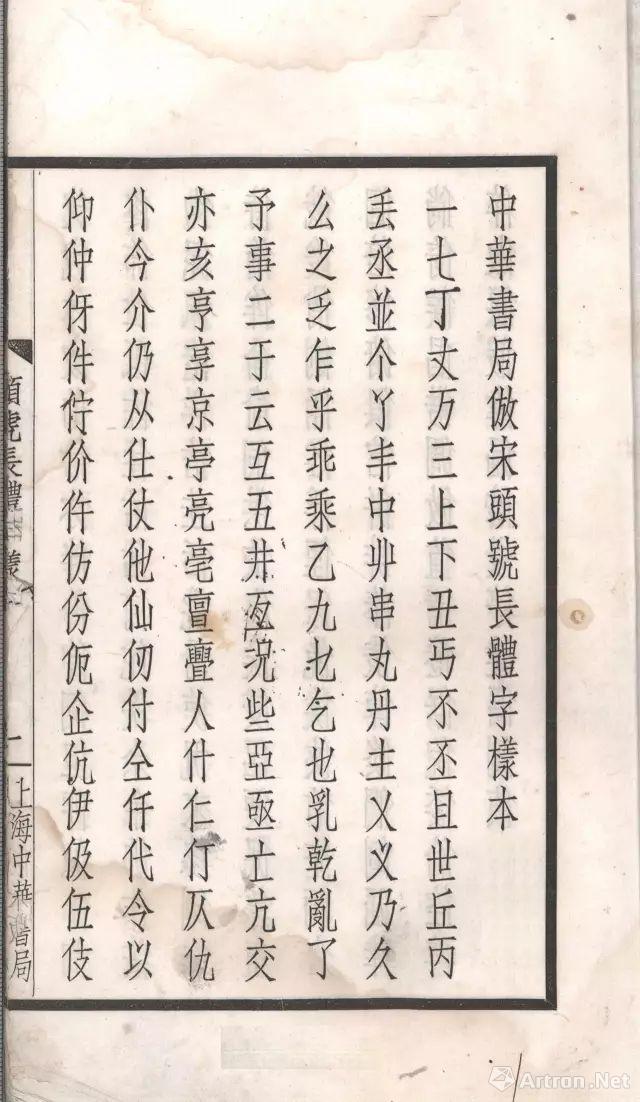 中華書局倣宋頭號長體字樣本
一七丁丈万三上下丑丐不丕且世丘丙
丟丞並个丫丰中丱串丸丹主乂义乃久
么之乏乍乎乖乘乙九乜乞也乳乾亂了
予事二于云互五井亙况些亞亟亡亢交
亦亥亨享京亭亮亳亶亹人什仁仃仄仇
仆今介仍从仕仗他仙仞付仝仟代令以
仰仲伢件佇价仵仿份伌企伉伊伋伍伎
頭號長體
二
上海中華書局
Artron.Net